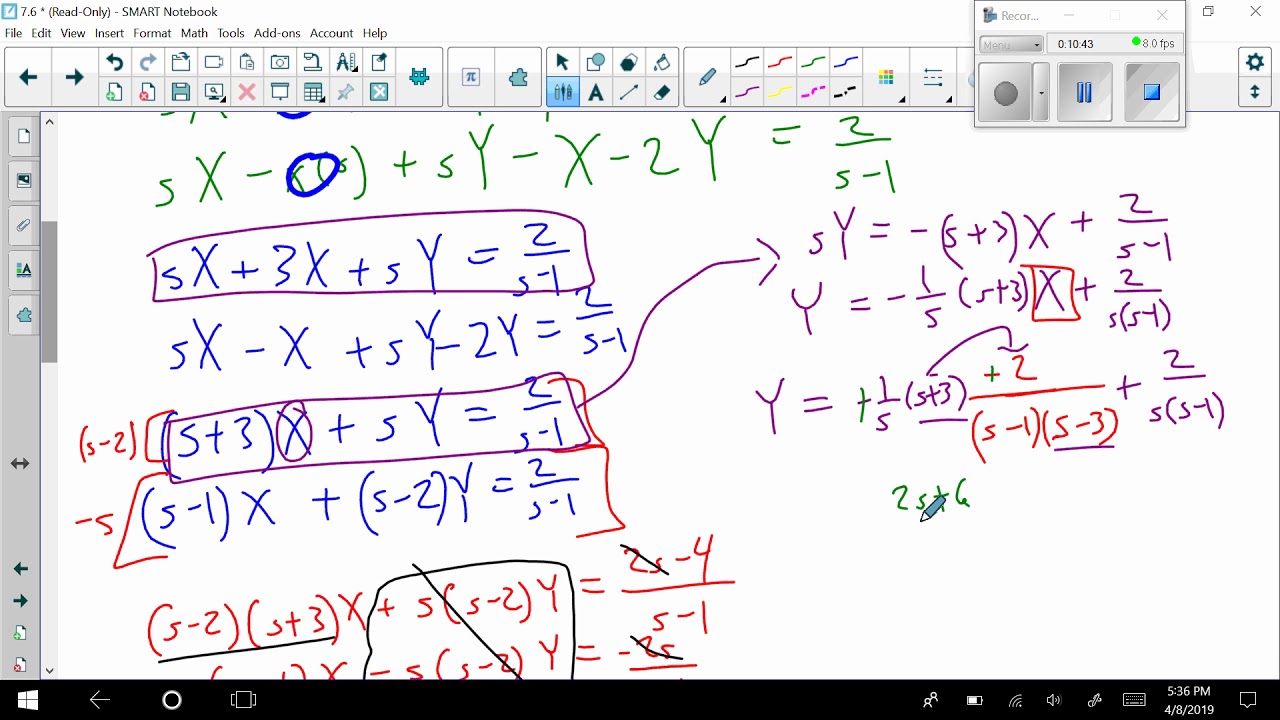 7.6 * (Read-Only) - SMART Notebook
File Edit View Insert Format Math Tools Add-ons Account Help
Recor...
Menu
0:10:43
8.0 fps
π
A
sX - x(s) + sY - X - 2Y = 2/(s-1)
sX + 3X + sY = 2/(s-1)
sX - X + sY - 2Y = 2/(s-1)
(s-2) [(s+3)X + sY = 2/(s-1)]
-s [(s-1)X + (s-2)Y = 2/(s-1)]
(s-2)(s+3)X + s(s-2)Y = (2s-4)/(s-1)
X - s(s-2)Y = -2s
sY = -(s+3)X + 2/(s-1)
Y = -1/s (s+3)X + 2/(s(s-1))
Y = +1/s (s+3) +2/((s-1)(s-3)) + 2/(s(s-1))
2s+6
5:36 PM
4/8/2019